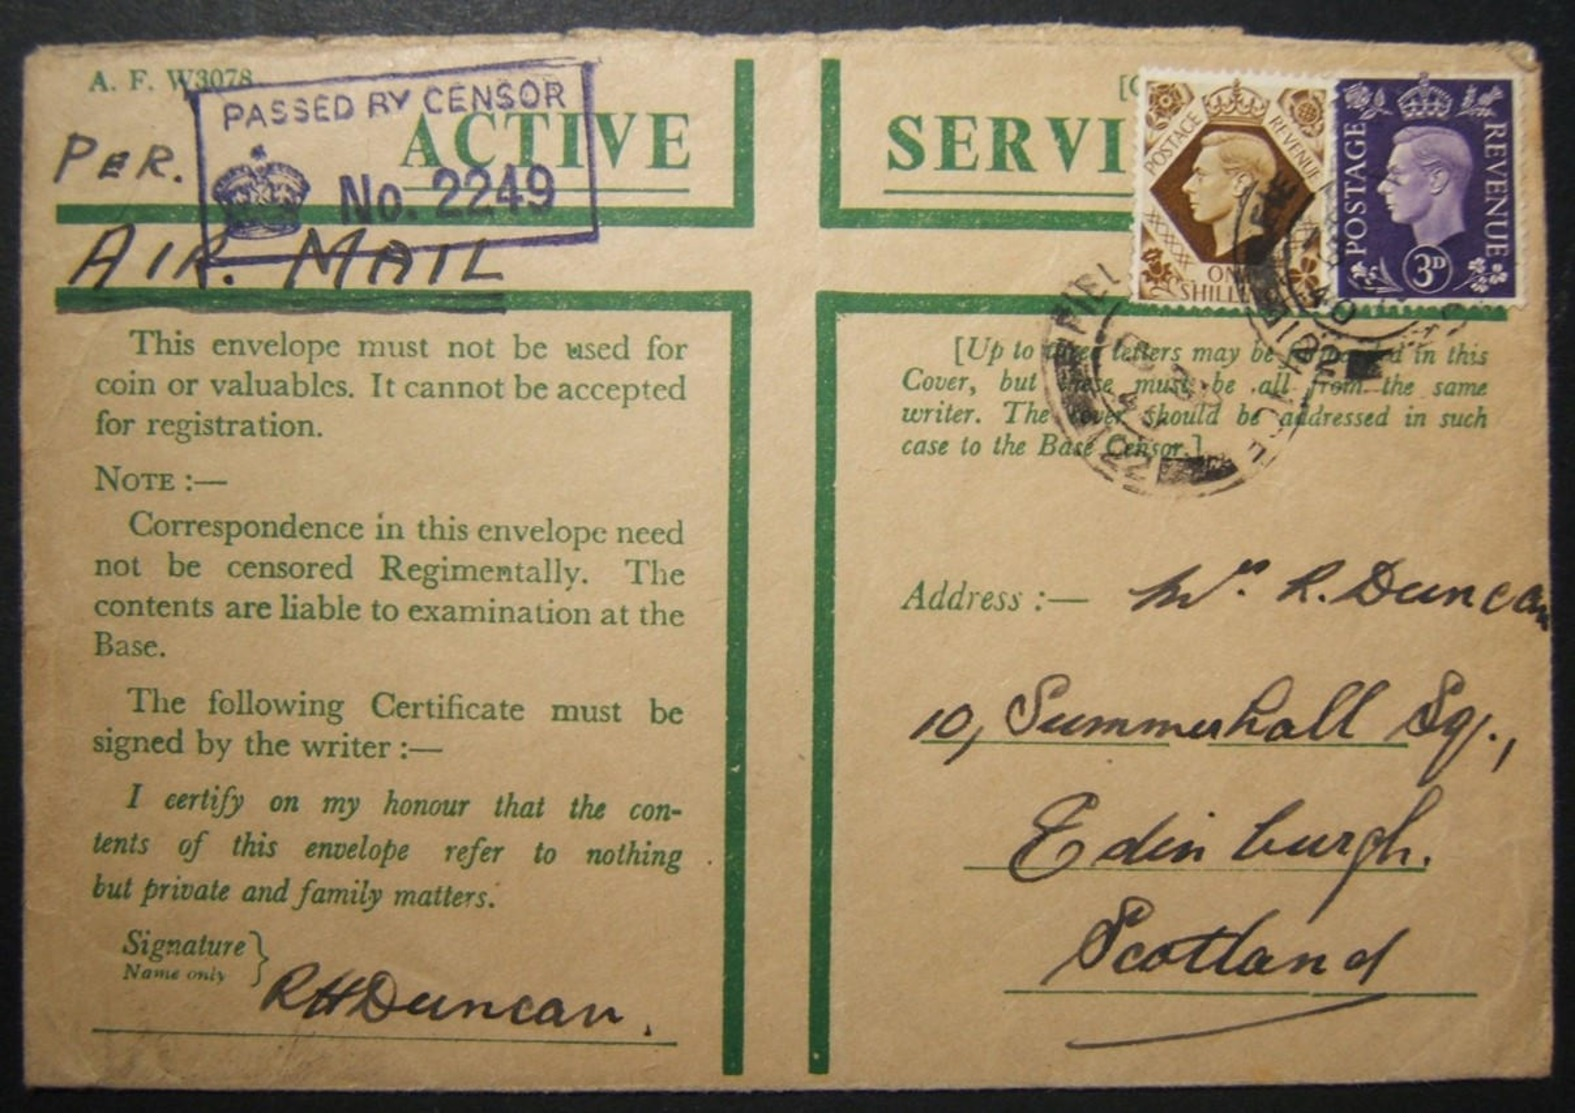 A. F. W3078
PASSED BY CENSOR
No. 2249
PER.
AIR. MAIL
ACTIVE
SERVI
POSTAGE REVENUE
ONE
SHILL
POSTAGE REVENUE
3D
FIEL
This envelope must not be used for
coin or valuables. It cannot be accepted
for registration.
NOTE :—
Correspondence in this envelope need
not be censored Regimentally. The
contents are liable to examination at the
Base.
The following Certificate must be
signed by the writer :—
I certify on my honour that the con-
tents of this envelope refer to nothing
but private and family matters.
Signature
Name only
RHDuncan.
[Up to three letters may be forwarded in this
Cover, but these must be all from the same
writer. The cover should be addressed in such
case to the Base Censor.]
Address :— Mrs. R. Duncan
10, Summerhall Sq.,
Edinburgh.
Scotland